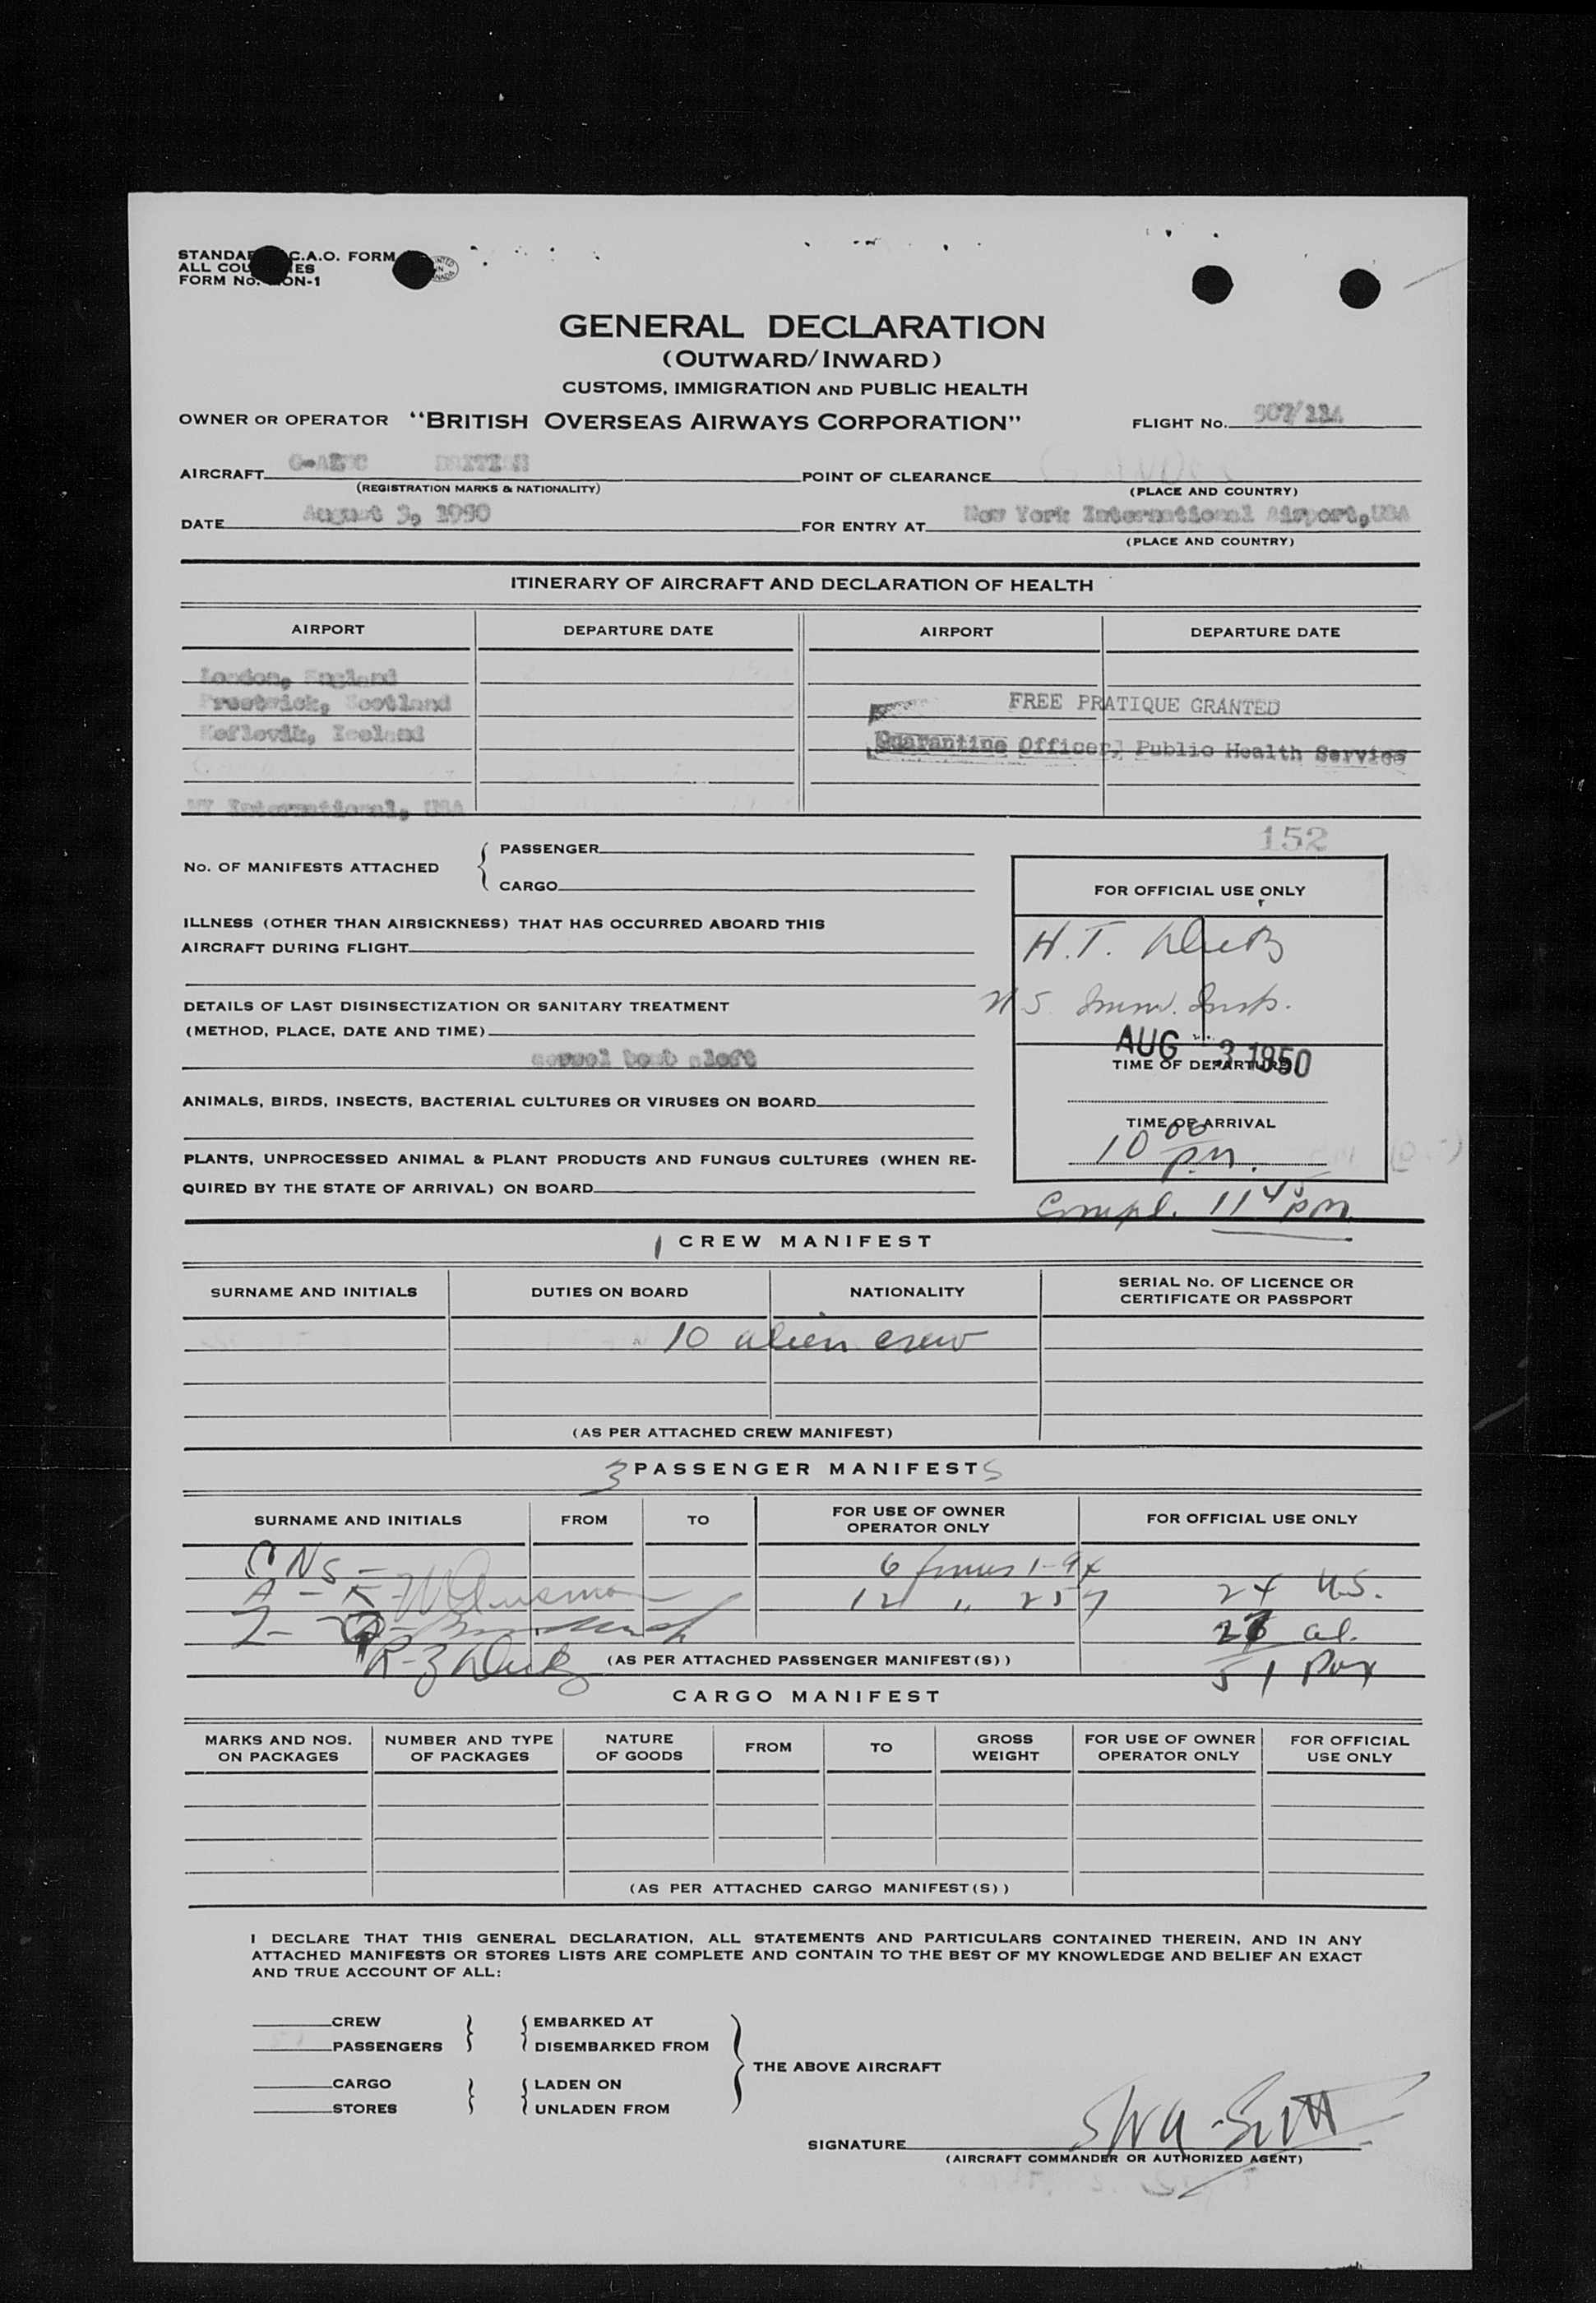 C.A.O. FORM
GENERAL DECLARATION
(OUTWARD/INWARD)
CUSTOMS, IMMIGRATION AND PUBLIC HEALTH
OWNER OR OPERATOR "BRITISH OVERSEAS AIRWAYS CORPORATION" FLIGHT No.
AIRCRAFT POINT OF CLEARANCE
(REGISTRATION MARKS & NATIONALITY) (PLACE AND COUNTRY)
DATE August 3, 1950 FOR ENTRY AT New York International Airport, USA
(PLACE AND COUNTRY)
ITINERARY OF AIRCRAFT AND DECLARATION OF HEALTH
AIRPORT DEPARTURE DATE AIRPORT DEPARTURE DATE
London, England
Prestwick, Scotland FREE PRATIQUE GRANTED
Keflevik, Iceland Quarantine Officer, Public Health Service
NY International, USA
152
No. OF MANIFESTS ATTACHED { PASSENGER
CARGO
FOR OFFICIAL USE ONLY
ILLNESS (OTHER THAN AIRSICKNESS) THAT HAS OCCURRED ABOARD THIS
AIRCRAFT DURING FLIGHT
H.T.
U.S. Imm. Insp.
DETAILS OF LAST DISINSECTIZATION OR SANITARY TREATMENT
(METHOD, PLACE, DATE AND TIME)
AUG 3 1950
aerosol bomb aloft
TIME OF DEPARTURE
ANIMALS, BIRDS, INSECTS, BACTERIAL CULTURES OR VIRUSES ON BOARD
TIME OF ARRIVAL
10 00 P.M.
PLANTS, UNPROCESSED ANIMAL & PLANT PRODUCTS AND FUNGUS CULTURES (WHEN RE-
QUIRED BY THE STATE OF ARRIVAL) ON BOARD
Compl. 11 45 pm
1 CREW MANIFEST
SURNAME AND INITIALS DUTIES ON BOARD NATIONALITY SERIAL No. OF LICENCE OR
CERTIFICATE OR PASSPORT
10 alien crew
(AS PER ATTACHED CREW MANIFEST)
3 PASSENGER MANIFESTS
SURNAME AND INITIALS FROM TO FOR USE OF OWNER
OPERATOR ONLY FOR OFFICIAL USE ONLY
6 forms I-94
A - K 12 " 257 24 U.S.
27 al.
R-Z 51 Pax
(AS PER ATTACHED PASSENGER MANIFEST(S))
CARGO MANIFEST
MARKS AND NOS.
ON PACKAGES NUMBER AND TYPE
OF PACKAGES NATURE
OF GOODS FROM TO GROSS
WEIGHT FOR USE OF OWNER
OPERATOR ONLY FOR OFFICIAL
USE ONLY
(AS PER ATTACHED CARGO MANIFEST(S))
I DECLARE THAT THIS GENERAL DECLARATION, ALL STATEMENTS AND PARTICULARS CONTAINED THEREIN, AND IN ANY
ATTACHED MANIFESTS OR STORES LISTS ARE COMPLETE AND CONTAIN TO THE BEST OF MY KNOWLEDGE AND BELIEF AN EXACT
AND TRUE ACCOUNT OF ALL:
CREW EMBARKED AT
PASSENGERS DISEMBARKED FROM
THE ABOVE AIRCRAFT
CARGO LADEN ON
STORES UNLADEN FROM
SIGNATURE
(AIRCRAFT COMMANDER OR AUTHORIZED AGENT)